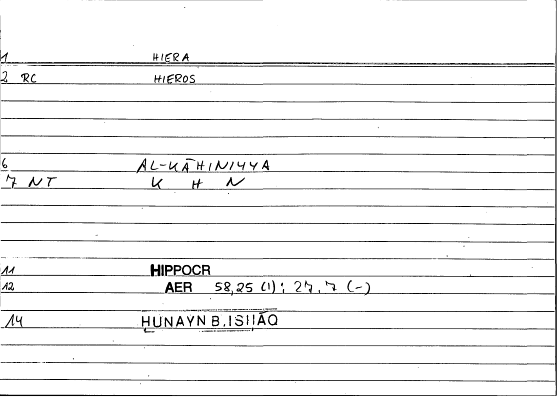 1 HIERA
2 RC HIEROS
6 AL-KĀHINIYYA
7 NT K H N
11 HIPPOCR
12 AER 58,25 (1); 27,7 (-)
14 ḪUNAYN B.ISḤĀQ